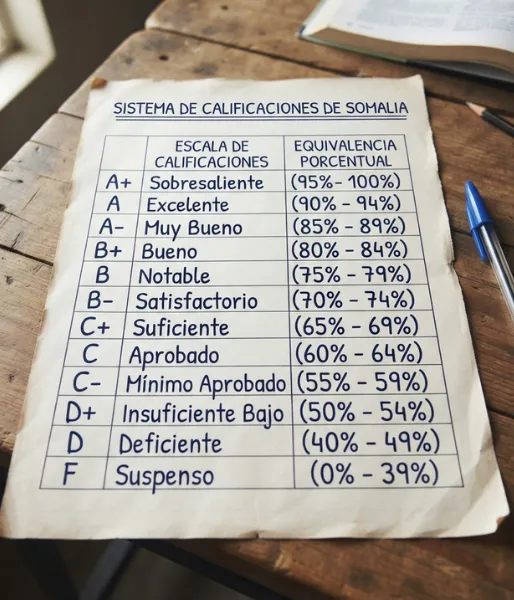 SISTEMA DE CALIFICACIONES DE SOMALIA
ESCALA DE CALIFICACIONES EQUIVALENCIA PORCENTUAL
A+ Sobresaliente (95% - 100%)
A Excelente (90% - 94%)
A- Muy Bueno (85% - 89%)
B+ Bueno (80% - 84%)
B Notable (75% - 79%)
B- Satisfactorio (70% - 74%)
C+ Suficiente (65% - 69%)
C Aprobado (60% - 64%)
C- Mínimo Aprobado (55% - 59%)
D+ Insuficiente Bajo (50% - 54%)
D Deficiente (40% - 49%)
F Suspenso (0% - 39%)